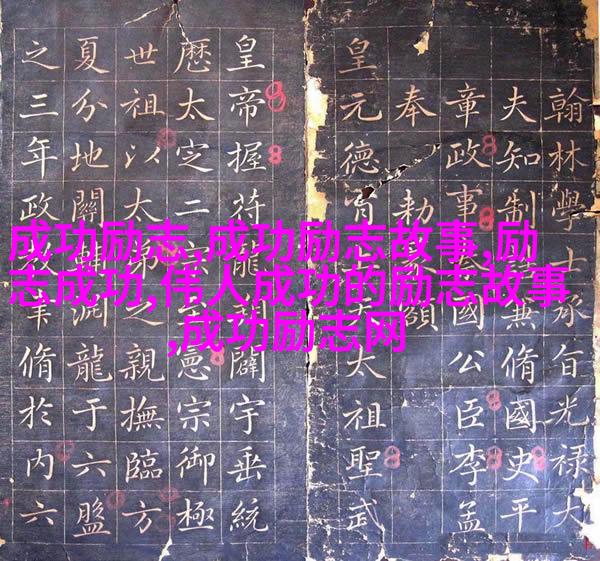 翰林學士承旨光祿大
夫知制兼脩國史平
章政事國公臣李孟
奉勅額
皇元德太祖聖武
皇帝握符龍闢宇垂統
歷太定二宗憲宗御極
世祖以太弟之親撫臨方
夏分地關淵龍于六盤
之三年政脩於內六
成功励志,成功励志故事,励
志成功,伟人成功的励志故事
,成功励志网